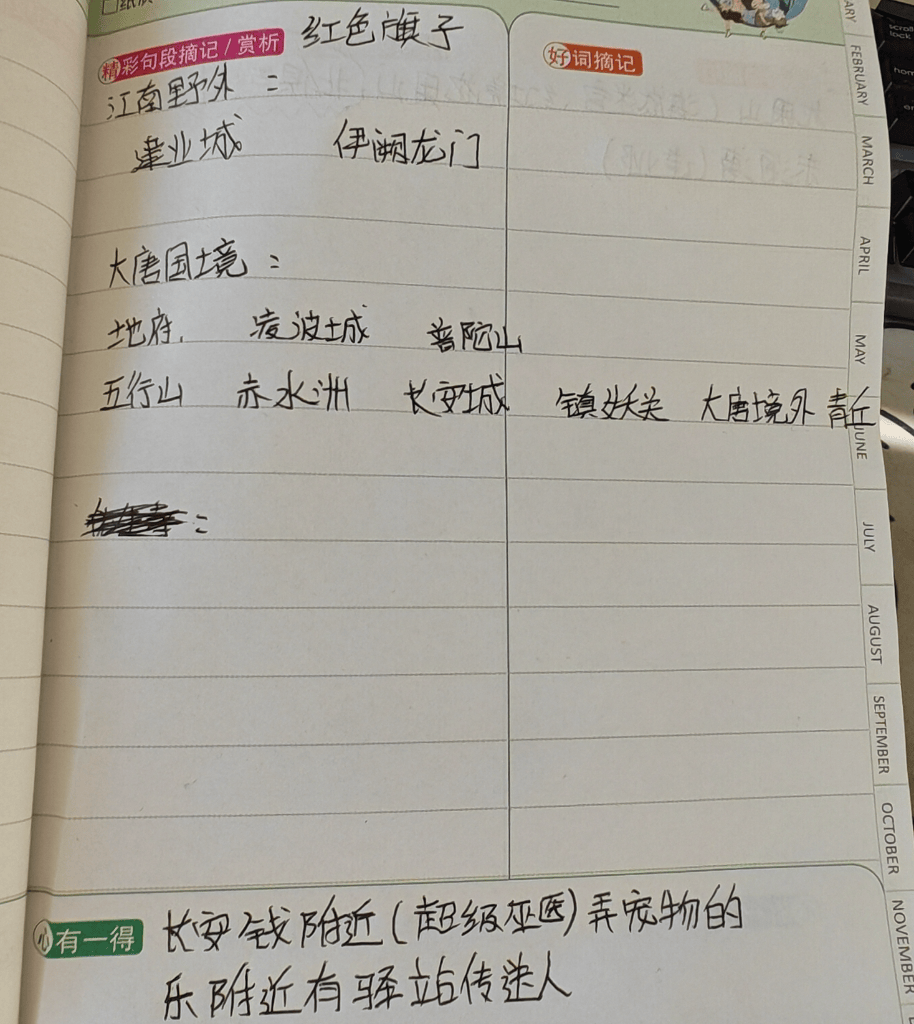 红色旗子
精彩句段摘记/赏析
好词摘记
江南野外：
建业城 伊阙龙门
大唐国境：
地府. 凌波城 普陀山
五行山 赤水洲 长安城 镇妖关 大唐境外 青丘
：
心有一得
长安钱附近(超级巫医)弄宠物的
乐附近有驿站传送人
ARY
FEBRUARY
MARCH
APRIL
MAY
JUNE
JULY
AUGUST
SEPTEMBER
OCTOBER
NOVEMBER
scroll
lock